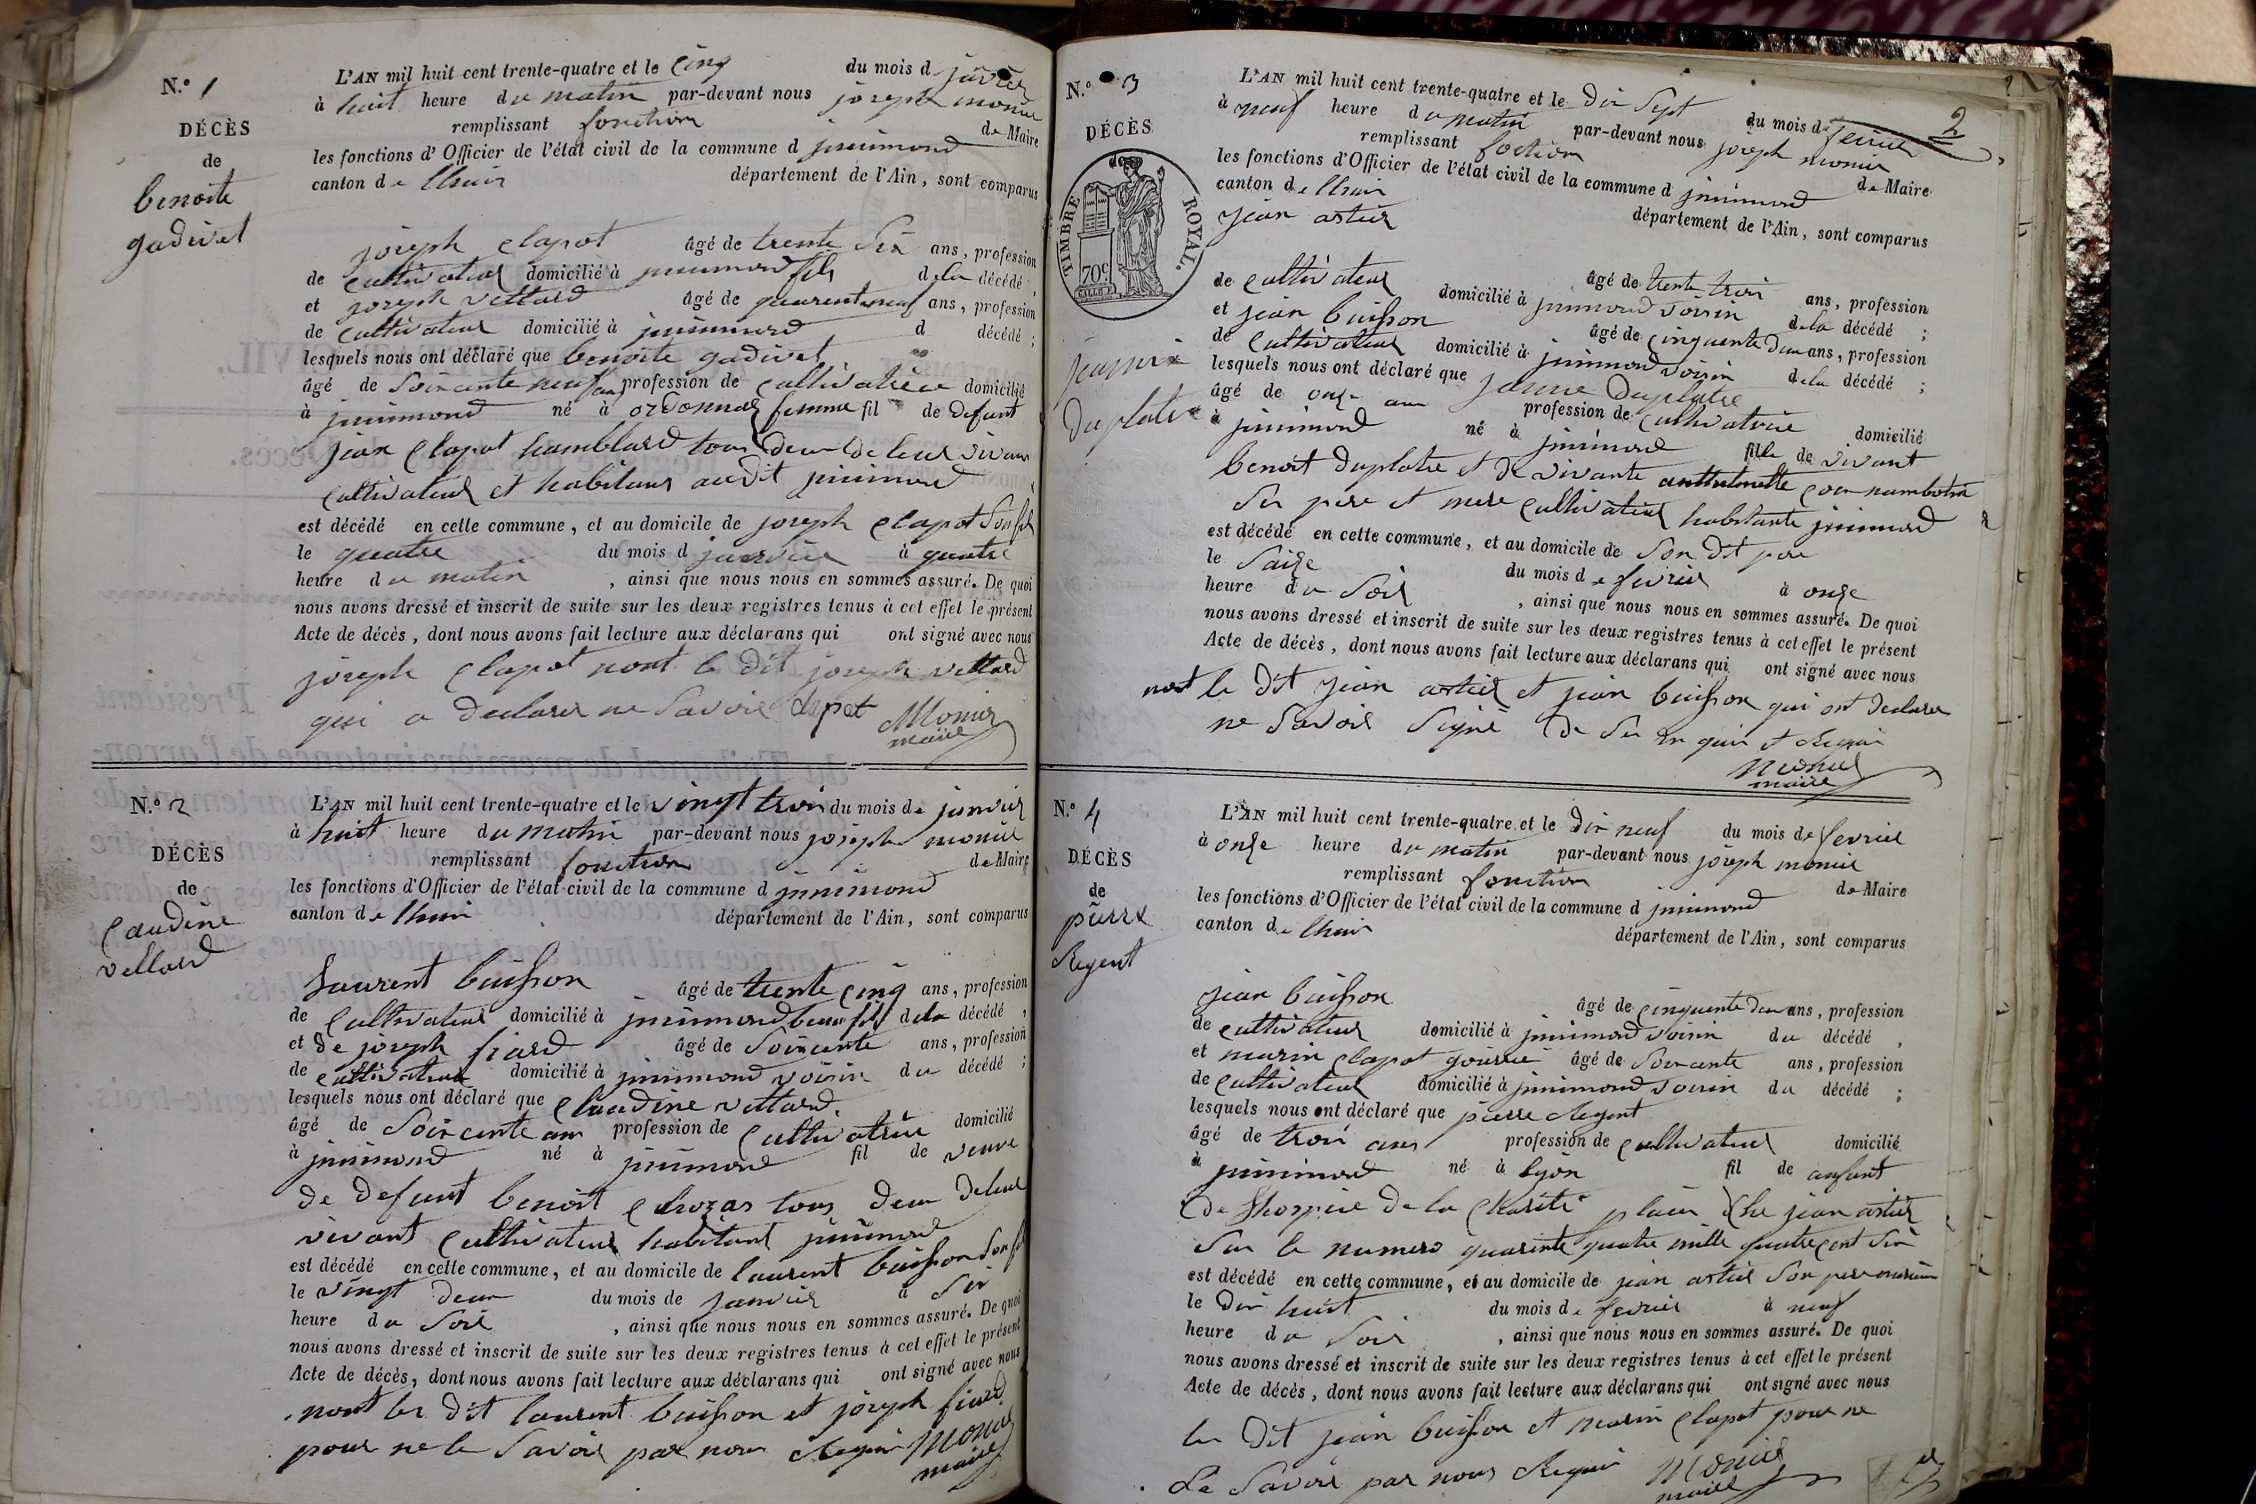 N.° 1
DÉCÈS
de
benoite
gadivet
L'AN mil huit cent trente-quatre et le cinq du mois d janvier
à huit heure du matin par-devant nous joseph monier
remplissant fonction de Maire
les fonctions d'Officier de l'état civil de la commune d innimond
canton de lhuis département de l'Ain, sont comparus
joseph clapot âgé de trente six ans, profession
de cultivateur domicilié à innimond fils de la décédé,
et joseph vettard âgé de quarente neuf ans, profession
de cultivateur domicilié à innimond d décédé;
lesquels nous ont déclaré que benoite gadivet
âgé de soixante neuf ans profession de cultivatrice domicilié
à innimond né à ordonnas femme fil de defunt
jean clapot hamblard tous deux de leur vivant
cultivateur et habitans audit innimond
est décédé en cette commune, et au domicile de joseph clapot son fils
le quatre du mois d janvier à quatre
heure du matin, ainsi que nous nous en sommes assuré. De quoi
nous avons dressé et inscrit de suite sur les deux registres tenus à cet effet le présent
Acte de décès, dont nous avons fait lecture aux déclarans qui ont signé avec nous
joseph clapot nont le dit joseph vettard
qui a declarer ne savoir clapot Monier
maire
N.° 2
DÉCÈS
de
Caudine
vettard
L'AN mil huit cent trente-quatre et le vingt trois du mois de janvier
à huit heure du matin par-devant nous joseph monier
remplissant fonction de Maire
les fonctions d'Officier de l'état civil de la commune d innimond
canton de lhuis département de l'Ain, sont comparus
laurent buisson âgé de trente cinq ans, profession
de cultivateur domicilié à innimond beau fils de la décédé,
et de joseph fiard âgé de soixante ans, profession
de cultivateur domicilié à innimond voisin du décédé;
lesquels nous ont déclaré que claudine vettard
âgé de soixante ans profession de cultivatrice domicilié
à innimond né à innimond fil de veuve
de defunt benoit chozas tous deux de leur
vivant cultivateur habitant innimond
est décédé en cette commune, et au domicile de laurent buisson son fils
le vingt deux du mois de janvier à six
heure du soir, ainsi que nous nous en sommes assuré. De quoi
nous avons dressé et inscrit de suite sur les deux registres tenus à cet effet le présent
Acte de décès, dont nous avons fait lecture aux déclarans qui ont signé avec nous
nont les dit laurent buisson et joseph fiard
pour ne le savoir par nous requis Monier
maire
2
N.° 3
DÉCÈS
TIMBRE ROYAL.
70c
jeanne
duplatre
L'AN mil huit cent trente-quatre et le dix sept du mois de fevrier
à neuf heure du matin par-devant nous joseph monier
remplissant foction de Maire
les fonctions d'Officier de l'état civil de la commune d innimond
canton de lhuis département de l'Ain, sont comparus
jean artier âgé de trente trois ans, profession
de cultivateur domicilié à innimond voisin de la décédé;
et jean buisson âgé de cinquente deux ans, profession
de cultivateur domicilié à innimond voisin de la décédé;
lesquels nous ont déclaré que jeanne duplatre
âgé de onze ans profession de cultivatrice domicilié
à innimond né à innimond fille de vivant
benoit duplatre et de vivante anttoinette
ses pere et mere cultivateur habitante innimond
est décédé en cette commune, et au domicile de son dit pere
le saize du mois de fevrier à onze
heure du soir, ainsi que nous nous en sommes assuré. De quoi
nous avons dressé et inscrit de suite sur les deux registres tenus à cet effet le présent
Acte de décès, dont nous avons fait lecture aux déclarans qui ont signé avec nous
nont le dit jean artier et jean buisson qui ont declarer
ne savoir signé de ser en quis et requis
Monier
maire
N.° 4
DÉCÈS
de
pierre
Regent
L'AN mil huit cent trente-quatre et le dix neuf du mois de fevrier
à onze heure du matin par-devant nous joseph monier
remplissant fonction de Maire
les fonctions d'Officier de l'état civil de la commune d innimond
canton de lhuis département de l'Ain, sont comparus
jean buisson âgé de cinquente deux ans, profession
de cultivateur domicilié à innimond voisin du décédé,
et marin clapot âgé de soixante ans, profession
de cultivateur domicilié à innimond voisin du décédé;
lesquels nous ont déclaré que pierre Regent
âgé de trois ans profession de cultivateur domicilié
à innimond né à lyon fil de anfant
de lhospice de la charité placer che jean artier
sur le numero quarente quatre mille quatre cent six
est décédé en cette commune, et au domicile de jean artier son pere
le dix huit du mois de fevrier à neuf
heure du soir, ainsi que nous nous en sommes assuré. De quoi
nous avons dressé et inscrit de suite sur les deux registres tenus à cet effet le présent
Acte de décès, dont nous avons fait lecture aux déclarans qui ont signé avec nous
les dit jean buisson et marin clapot pour ne
le savoir par nous requis Monier
maire